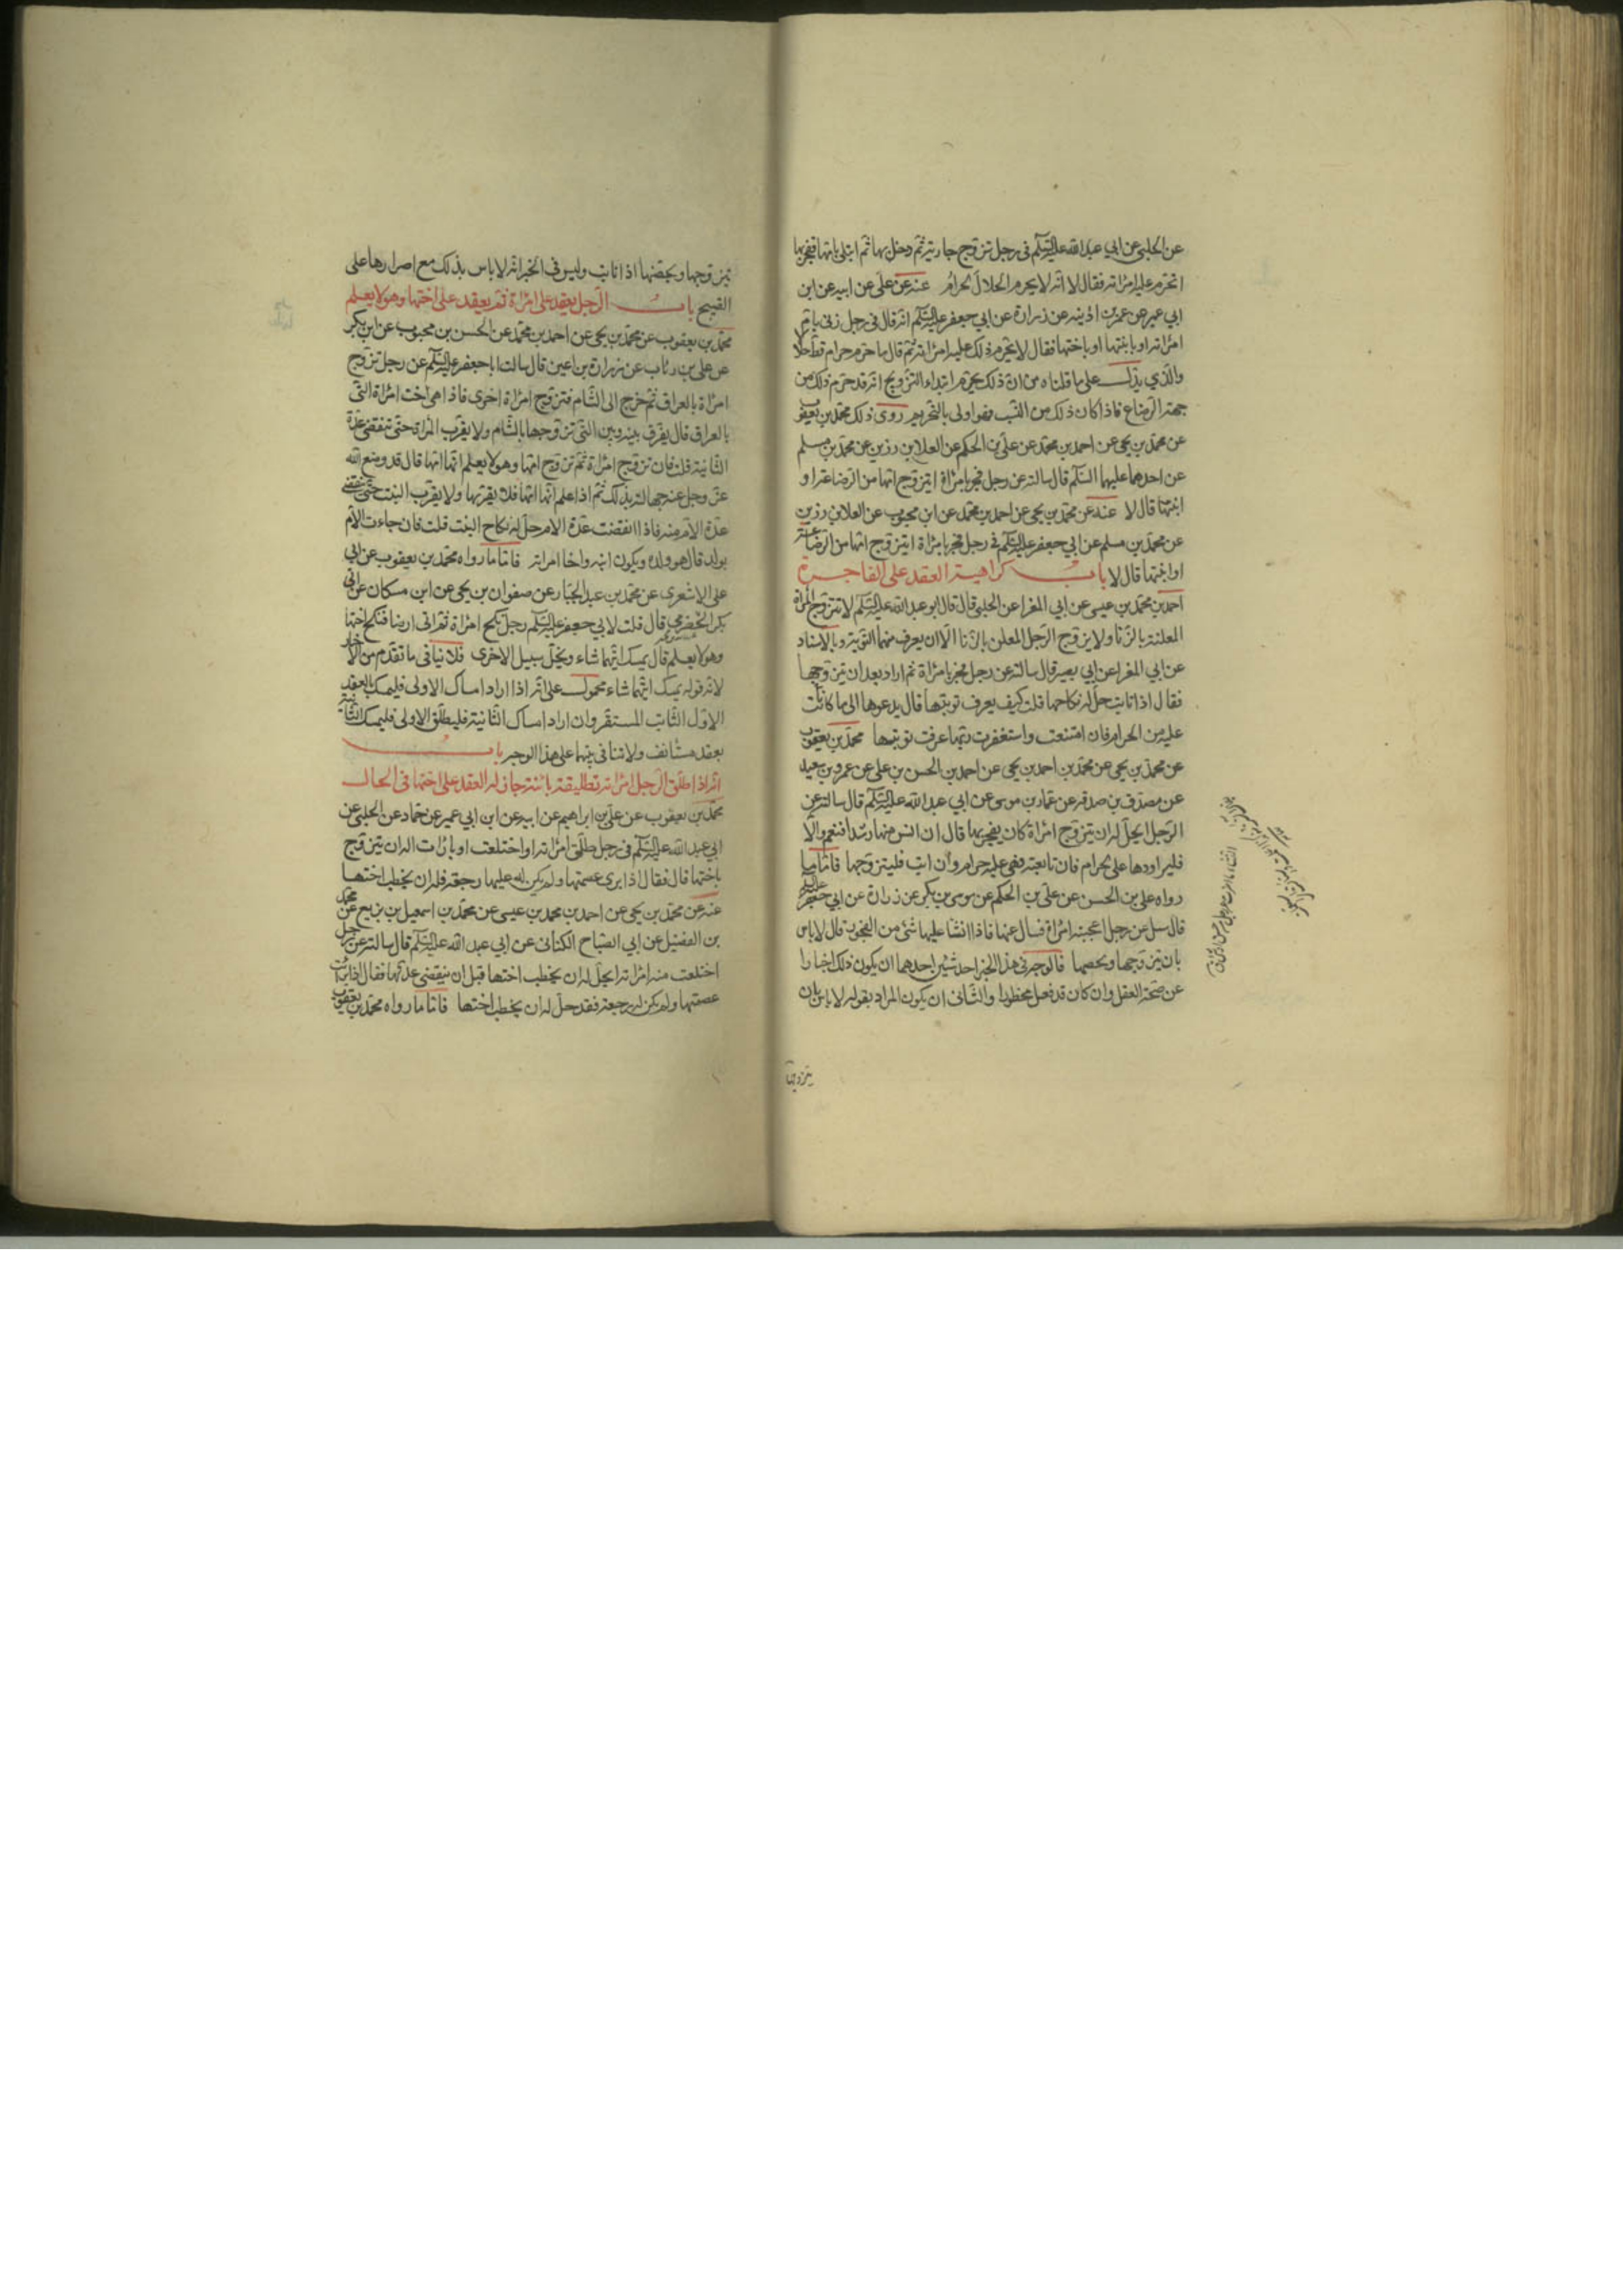 عن الحلبي عن ابي عبد الله عليه السلم في رجل تزوج جارية ثم دخل بها ثم ابتلي بامها ففجر بها
اتحرم عليه امرأته فقال لا انه لا يحرم الحلال الحرام عنه عن علي عن ابيه عن ابن
ابي عمير عن عمر بن اذينه عن زرارة عن ابي جعفر عليه السلم انه قال في رجل زنى بام
امرأته او بابنتها او باختها فقال لا يحرم ذلك عليه امرأته ثم قال ما حرم حرام قط حلالا
والذي يدل على ما قلناه من ان ذلك يحرم ابتداء التزويج انه قد حرم ذلك من
جهة الرضاع فاذا كان ذلك من النسب فهو اولى بالتحريم روى ذلك محمد بن يعقوب
عن محمد بن يحيى عن احمد بن محمد عن علي بن الحكم عن العلا بن رزين عن محمد بن مسلم
عن احدهما عليهما السلم قال سالته عن رجل فجر بامرأة ايتزوج امها من الرضاعة او
ابنتها قال لا عنه عن محمد بن يحيى عن احمد بن محمد عن ابن محبوب عن العلا بن رزين
عن محمد بن مسلم عن ابي جعفر عليه السلم في رجل فجر بامرأة ايتزوج امها من الرضاعة
او ابنتها قال لا باب كراهية العقد على الفاجرة
احمد بن محمد بن عيسى عن ابي المغرا عن الحلبي قال قال ابو عبد الله عليه السلم لا تتزوج المرأة
المعلنة بالزنا ولا يزوج الرجل المعلن بالزنا الا ان يعرف منهما التوبة وبالاسناد
عن ابي المغرا عن ابي بصير قال سالته عن رجل فجر بامرأة ثم اراد بعد ان يتزوجها
فقال اذا تابت حل له نكاحها قلت كيف يعرف توبتها قال يدعوها الى ما كانت
عليه من الحرام فان امتنعت واستغفرت ربها عرفت توبتها محمد بن يعقوب
عن محمد بن يحيى عن محمد بن احمد بن يحيى عن احمد بن الحسن بن علي عن عمرو بن سعيد
عن مصدق بن صدقه عن عمار بن موسى عن ابي عبد الله عليه السلم قال سالته عن
الرجل ايحل له ان يتزوج امرأة كان يفجر بها قال ان انس منها رشدا فنعم والا
فليراودها على الحرام فان تابعته فهي عليه حرام وان ابت فليتزوجها فاما ما
رواه علي بن الحسن عن علي بن الحكم عن موسى بن بكر عن زرارة عن ابي جعفر عليه السلم
قال سئل عن رجل اعجبته امرأة فسال عنها فاذا الثناء عليها شئ من الفجور قال لا باس
بان يتزوجها ويحصنها فالوجه في هذا الخبر احد شيئين احدهما ان يكون ذلك اخبارا
عن صحة العقد وان كان قد فعل محظورا والثاني ان يكون المراد بقوله لا باس بان
يتزوجها
يتزوجها ويحصنها اذا تابت وليس في الخبر انه لا باس بذلك مع اصرارها على
القبيح باب الرجل يعقد على امرأة ثم يعقد على اختها وهو لا يعلم
محمد بن يعقوب عن محمد بن يحيى عن احمد بن محمد عن الحسن بن محبوب عن ابن بكير
عن علي بن رئاب عن زرارة بن اعين قال سالت ابا جعفر عليه السلم عن رجل تزوج
امرأة بالعراق ثم خرج الى الشام فتزوج امرأة اخرى فاذا هي اخت امرأة التي
بالعراق قال يفرق بينه وبين التي تزوجها بالشام ولا يقرب المرأة حتى تنقضي عدة
الثانية قلت فان تزوج امرأة ثم تزوج امها وهو لا يعلم انها امها قال قد وضع الله
عز وجل عنه جهالته بذلك ثم اذا علم انها امها فلا يقربها ولا يقرب البنت حتى تنقضي
عدة الام منه فاذا انقضت عدة الام حل له نكاح البنت قلت فان جاءت الام
بولد قال هو ولده ويكون ابنه واخا امراته فاما ما رواه محمد بن يعقوب عن ابي
علي الاشعري عن محمد بن عبد الجبار عن صفوان بن يحيى عن ابن مسكان عن ابي
بكر الحضرمي قال قلت لابي جعفر عليه السلم رجل نكح امرأة ثم اتى ارضا فنكح اختها
وهو لا يعلم قال يمسك ايتهما شاء ويخلي سبيل الاخرى فلا ينافي ما تقدم من الاخبار
لانه قوله يمسك ايتهما شاء محمول على انه اذا اراد امساك الاولى فليمسك بالعقد
الاول الثابت المستقر وان اراد امساك الثانية فليطلق الاولى فليمسك الثانية
بعقد مستانف ولا تنافي بينهما على هذا الوجه باب
انه اذا طلق الرجل امراته تطليقة بائنة جاز له العقد على اختها في الحال
محمد بن يعقوب عن علي بن ابراهيم عن ابيه عن ابن ابي عمير عن حماد عن الحلبي عن
ابي عبد الله عليه السلم في رجل طلق امرأته او اختلعت او بارأت اله ان يتزوج
باختها قال فقال اذا برئ عصمتها ولم يكن له عليها رجعة فله ان يخطب اختها
عنه عن محمد بن يحيى عن احمد بن محمد بن عيسى عن محمد بن اسمعيل بن بزيع عن محمد
بن الفضيل عن ابي الصباح الكناني عن ابي عبد الله عليه السلم قال سالته عن رجل
اختلعت منه امرأته ايحل له ان يخطب اختها قبل ان ينقضي عدتها فقال اذا برئت
عصمتها ولم يكن له رجعة فقد حل له ان يخطب اختها فاما ما رواه محمد بن يعقوب